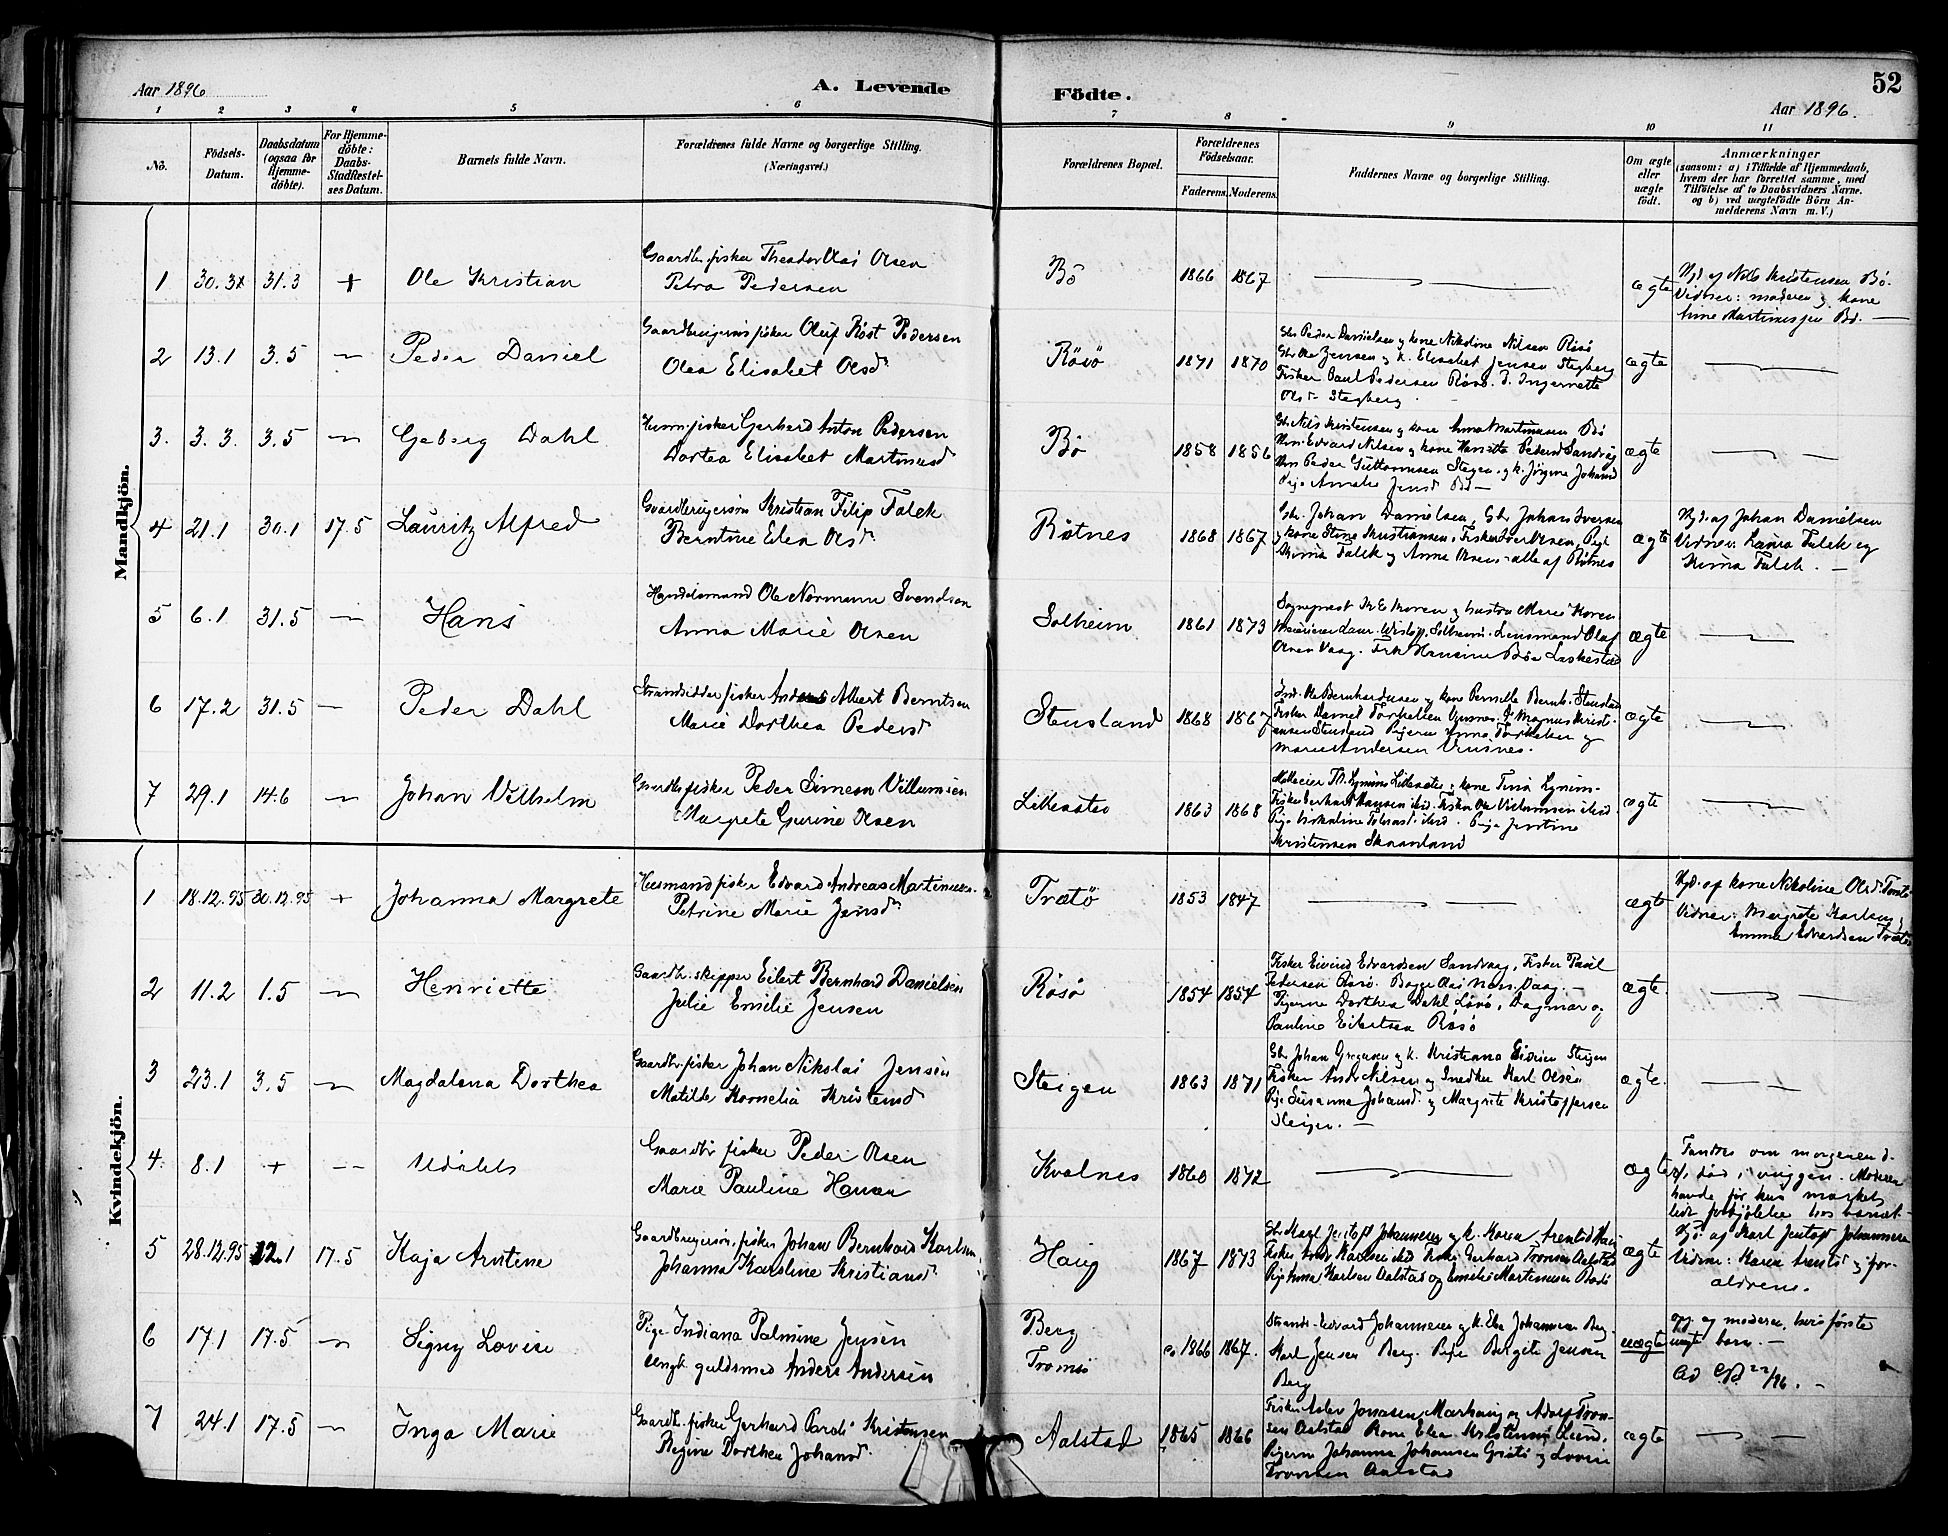 52
Aar 1896
A. Levende
Födte.
Aar 1896.
1 2 3 4 5 6 7 8 9 10 11
No.
Födsels-Datum.
Daabsdatum (ogsaa for Hjemme-döbte).
For Hjemme-döbte: Daabs-Stadfæstel-ses Datum.
Barnets fulde Navn.
Forældrenes fulde Navne og borgerlige Stilling. (Næringsvei.)
Forældrenes Bopæl.
Forældrenes Födselsaar.
Faderens. Moderens.
Faddernes Navne og borgerlige Stilling.
Om ægte eller uægte födt.
Anmærkninger
(saasom: a) i Tilfælde af Hjemmedaab, hvem der har forrettet samme, med Tilföielse af to Daabsvidners Navne. og b) ved uægtefödte Börn An-melderens Navn m. V.)
Mandkjön.
1 30.3 31.3 + Ole Kristian
Gaardbr. fisker Theodor Olai Olsen
Petra Pedersen
Bö 1866 1867 ægte
Hjd. af Nils Kristensen Bö.
Vidner: moderen og kone
Anne Martinussen Bö.
2 13.1 3.5 Peder Daniel
Gaardbrugersön fisker Oluf Röst Pedersen
Olea Elisabet Olsd
Rösö 1871 1870
Gbr Peder Danielsen og kone Nikoline Nilsen Rösö
Gbr Ole Jensen og k. Elisabet Jensen Stegberg
Fisker Paul Pedersen Rösö. P. Ingernette
Olsd Stegberg.
ægte
3. 3.3. 3.5 Geberg Dahl
Husm. fisker Gerhard Anton Pedersen
Dortea Elisabet Martinusd
Bö 1858 1856
Gbr Nils Kristensen og kone Anna Martinusen Bö
Hm. Edvard Nilsen og kone Henrette Pedersd Sandvåg
Hm. Peder Guttormsen Stegen og k. Jörgine Johansd
Pige Amalie Jensd Bö
ægte
4 21.1 30.1 17.5 Lauritz Alfred
Gaardbrugersön Kristian Filip Falck
Berntine Elea Olsd
Rötnes 1868 1867
Gbr. Johan Danielsen, Gbr Johan Iversen
og kone Stine Kristiansen, Fisker Iver Olsen, Pige
Mina Falck og Anna Olsen alle af Rötnes
ægte
Hjd. af Johan Danielsen
Vidner: Laura Falck og
Mina Falck.
5 6.1 31.5 Hans
Handelsmand Ole Normann Svendsen
Anna Marie Olsen
Solheim 1861 1873
Sogneprest K E Koren og hustru Marie Koren
Solheim. Lensmand Olaf
Olsen Vaag. Frk Hansine Böe Laskestad
ægte
6 17.2 31.5 Peder Dahl
Strandsidder fisker Anders Albert Berntsen
Marie Dorthea Pedersd
Stensland 1868 1867
Ind. Ole Bernhardusen og kone Pernille Bernh. Stensland
Fisker Daniel Torkelsen Vinsnes. F. Magnus Kristi-
ansen Stensland Pigerne Anna Torkelsen og
Marie Andersen Vinsnes.
ægte
7 29.1 14.6 Johan Vilhelm
Gaardbr. fisker Peder Simeon Villumsen
Margrete Gurine Olsen
Lillestø 1863 1868
Fisker Gerhard Hansen ibid. Fisker Ole Villumsen ibid.
Kristensen Skaanland
ægte
Kvindekjön.
1 18.12.95 30.12.95 + Johanna Margrete
Husmand fisker Edvard Andreas Martinussen.
Petrine Marie Jensd
Trætö 1853 1847 ægte
Hjd. af kone Nikoline Olsd. Trætö
Vidner: Margrete Karlsen og
Emma Edvardsen Trætö
2 11.2 1.5 Henriette
Gaardbr. skipper Eilert Bernhard Danielsen
Julie Emilie Jensen
Rösö 1854 1854
Fisker Eivind Edvardsen Sandvaag, Fisker Paul
Pedersen Rösö. Nass Vaag.
Pigerne Dorthea Dahl Lövö, Dagmar og
Pauline Eilertsen Rösö
ægte.
3 23.1 3.5 Magdalena Dorthea
Gaardbr. fisker Johan Nikolai Jensen
Matilde Kornelia Kristensd
Steigen 1863 1871
Gbr Johan Gregusen og k. Kristiana Steigen
Fisker Andr Nilsen og Snedker Karl Olsen
Pige Susanna Johansd. og Margrete Kristoffersen
Steigen.
ægte.
4. 8.1 + Udöbt
Gaardbr fisker Peder Olsen
Marie Pauline Hansen
Kvalnes 1860 1872 ægte
Fandtes om morgenen d.
död i vuggen. Moderen
havde för hun mærket
lidt forkjölelse hos barnet.
5 28.12.95 12.1 17.5 Kaja Arntine
Gaardbrugersön, fisker Johan Bernhard Karlsen
Johanna Karoline Kristiansd.
Haug 1867 1873
Gbr Karl Jentoft Johannesen og k. Karen Arentsd Haug
Fisker Andr Karlsen ibid Fisker Gerhard Tronsen Aalstad
Pige Anna Karlsen Aalstad og Emelie Martinusen Bodö
ægte
Hjd. af Karl Jentoft Johannesen
Vidner: Karen Arentsd og for-
ældrene.
6 17.1 17.5 Signy Lovise
Pige Indiana Palmine Jensen
Ungk. guldsmed Anders Andersen
Berg
Tromsö
1866 1867.
Strands. Edvard Johannesen og k. Elen Johannesen Berg.
Karl Jensen Berg. Pige Bergite Jensen
Berg
uægte
Opg. af moderen, hans förste
uægte barn.
22/96.
7 24.1 17.5 Inga Marie
Gaardbr. fisker Gerhard Parli Kristensen
Regine Dorthea Johansd
Aalstad 1865 1866
Fisker Aslev Jonassen Markaug og Adolf Tron-
sen Aalstad Kone Elen Kristensen Lund.
Pigerne Johanna Johansen Grötö og Lovise
Tronsen Aalstad
ægte